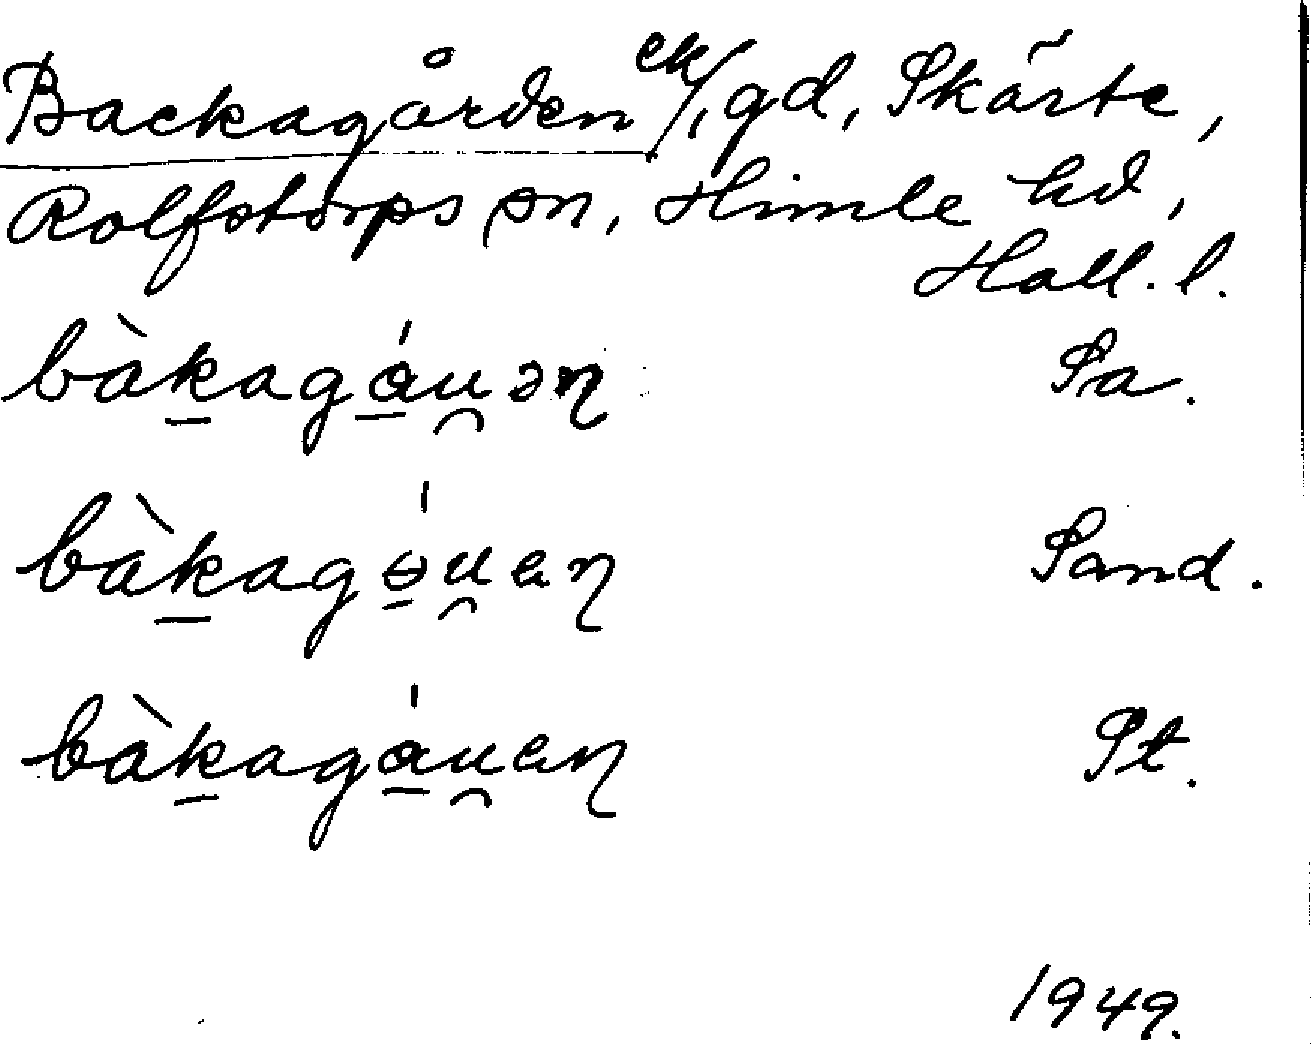 Backagården ek/, gd, Skärte,
Rolfstorps sn, Himle hd,
Hall. l.
bàk̠agá̠u̯əɳ Sa.
bàk̠agɵ̠́u̯eɳ Sand.
bàk̠agá̠u̯eɳ St.
1949.